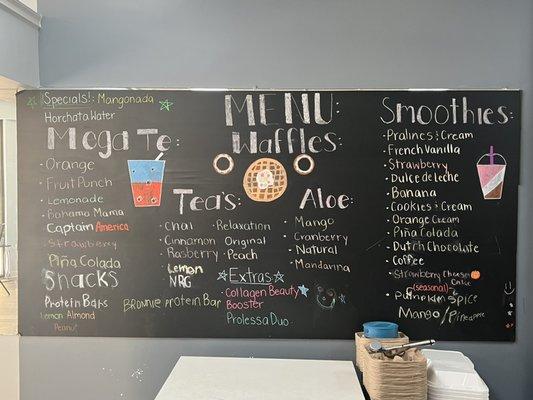 Specials!: Mangonada
Horchata Water
Mega Te:
· Orange
· Fruit Punch
· Lemonade
· Bahama Mama
Captain America
· Strawberry
Piña Colada
Snacks
Protein Bars
Lemon Almond
Peanut
Brownie Protein Bar
MENU:
Waffles:
Tea's:
· Chai
· Cinnamon
· Rasberry
· Lemon
NRG
· Relaxation
· Original
· Peach
Aloe:
· Mango
· Cranberry
· Natural
· Mandarina
Extras
Collagen Beauty
Booster
Prolessa Duo
Smoothies:
· Pralines & Cream
· French Vanilla
· Strawberry
· Dulce de leche
· Banana
· Cookies & Cream
· Orange Cream
· Piña Colada
· Dutch Chocolate
· Coffee
· Strawberry Cheese
Cake
(seasonal)
· Pumpkin Spice
· Mango/Pineapple